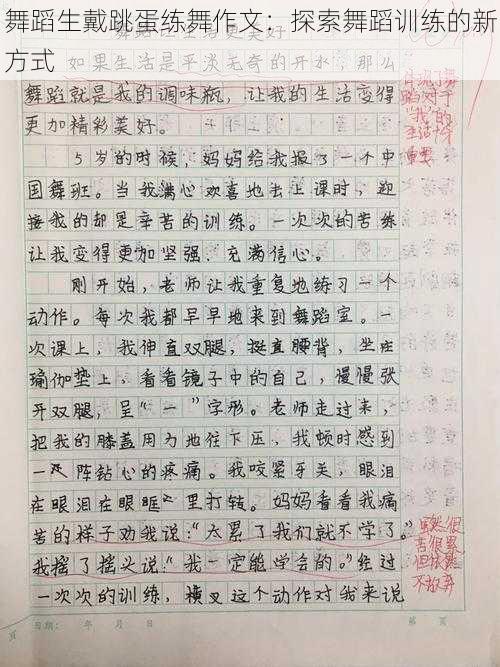 舞蹈生戴跳蛋练舞作文；探索舞蹈训练的新
方式
如果生活是平淡无奇的开水，那么
舞蹈就是我的调味瓶，让我的生活变得
更加精彩美好。
5岁的时候，妈妈给我报了一个中
国舞班。当我满心欢喜地去上课时，迎
接我的却是辛苦的训练。一次次的苦练
让我变得更加坚强、充满信心。
刚开始，老师让我重复地练习一个
动作。每次我都早早地来到舞蹈室。一
次课上，我伸直双腿，挺直腰背，坐在
瑜伽垫上，看看镜子中的自己，慢慢张
开双腿，呈“一”字形。老师走过来，
把我的膝盖用力地往下压，我顿时感到
一阵钻心的疼痛。我咬紧牙关，眼泪
在眼泪在眼眶里打转。妈妈看看我痛
苦的样子劝我说：“太累了我们就不学了。”
我摇了摇头说：“我一定能学会的。”经过
一次次的训练，横叉这个动作对我来说
舞
蹈对于
“我”的
生活十分
重要
虽然很
苦很累
但依然
不放弃
页
日期： 年 月 日
第 页